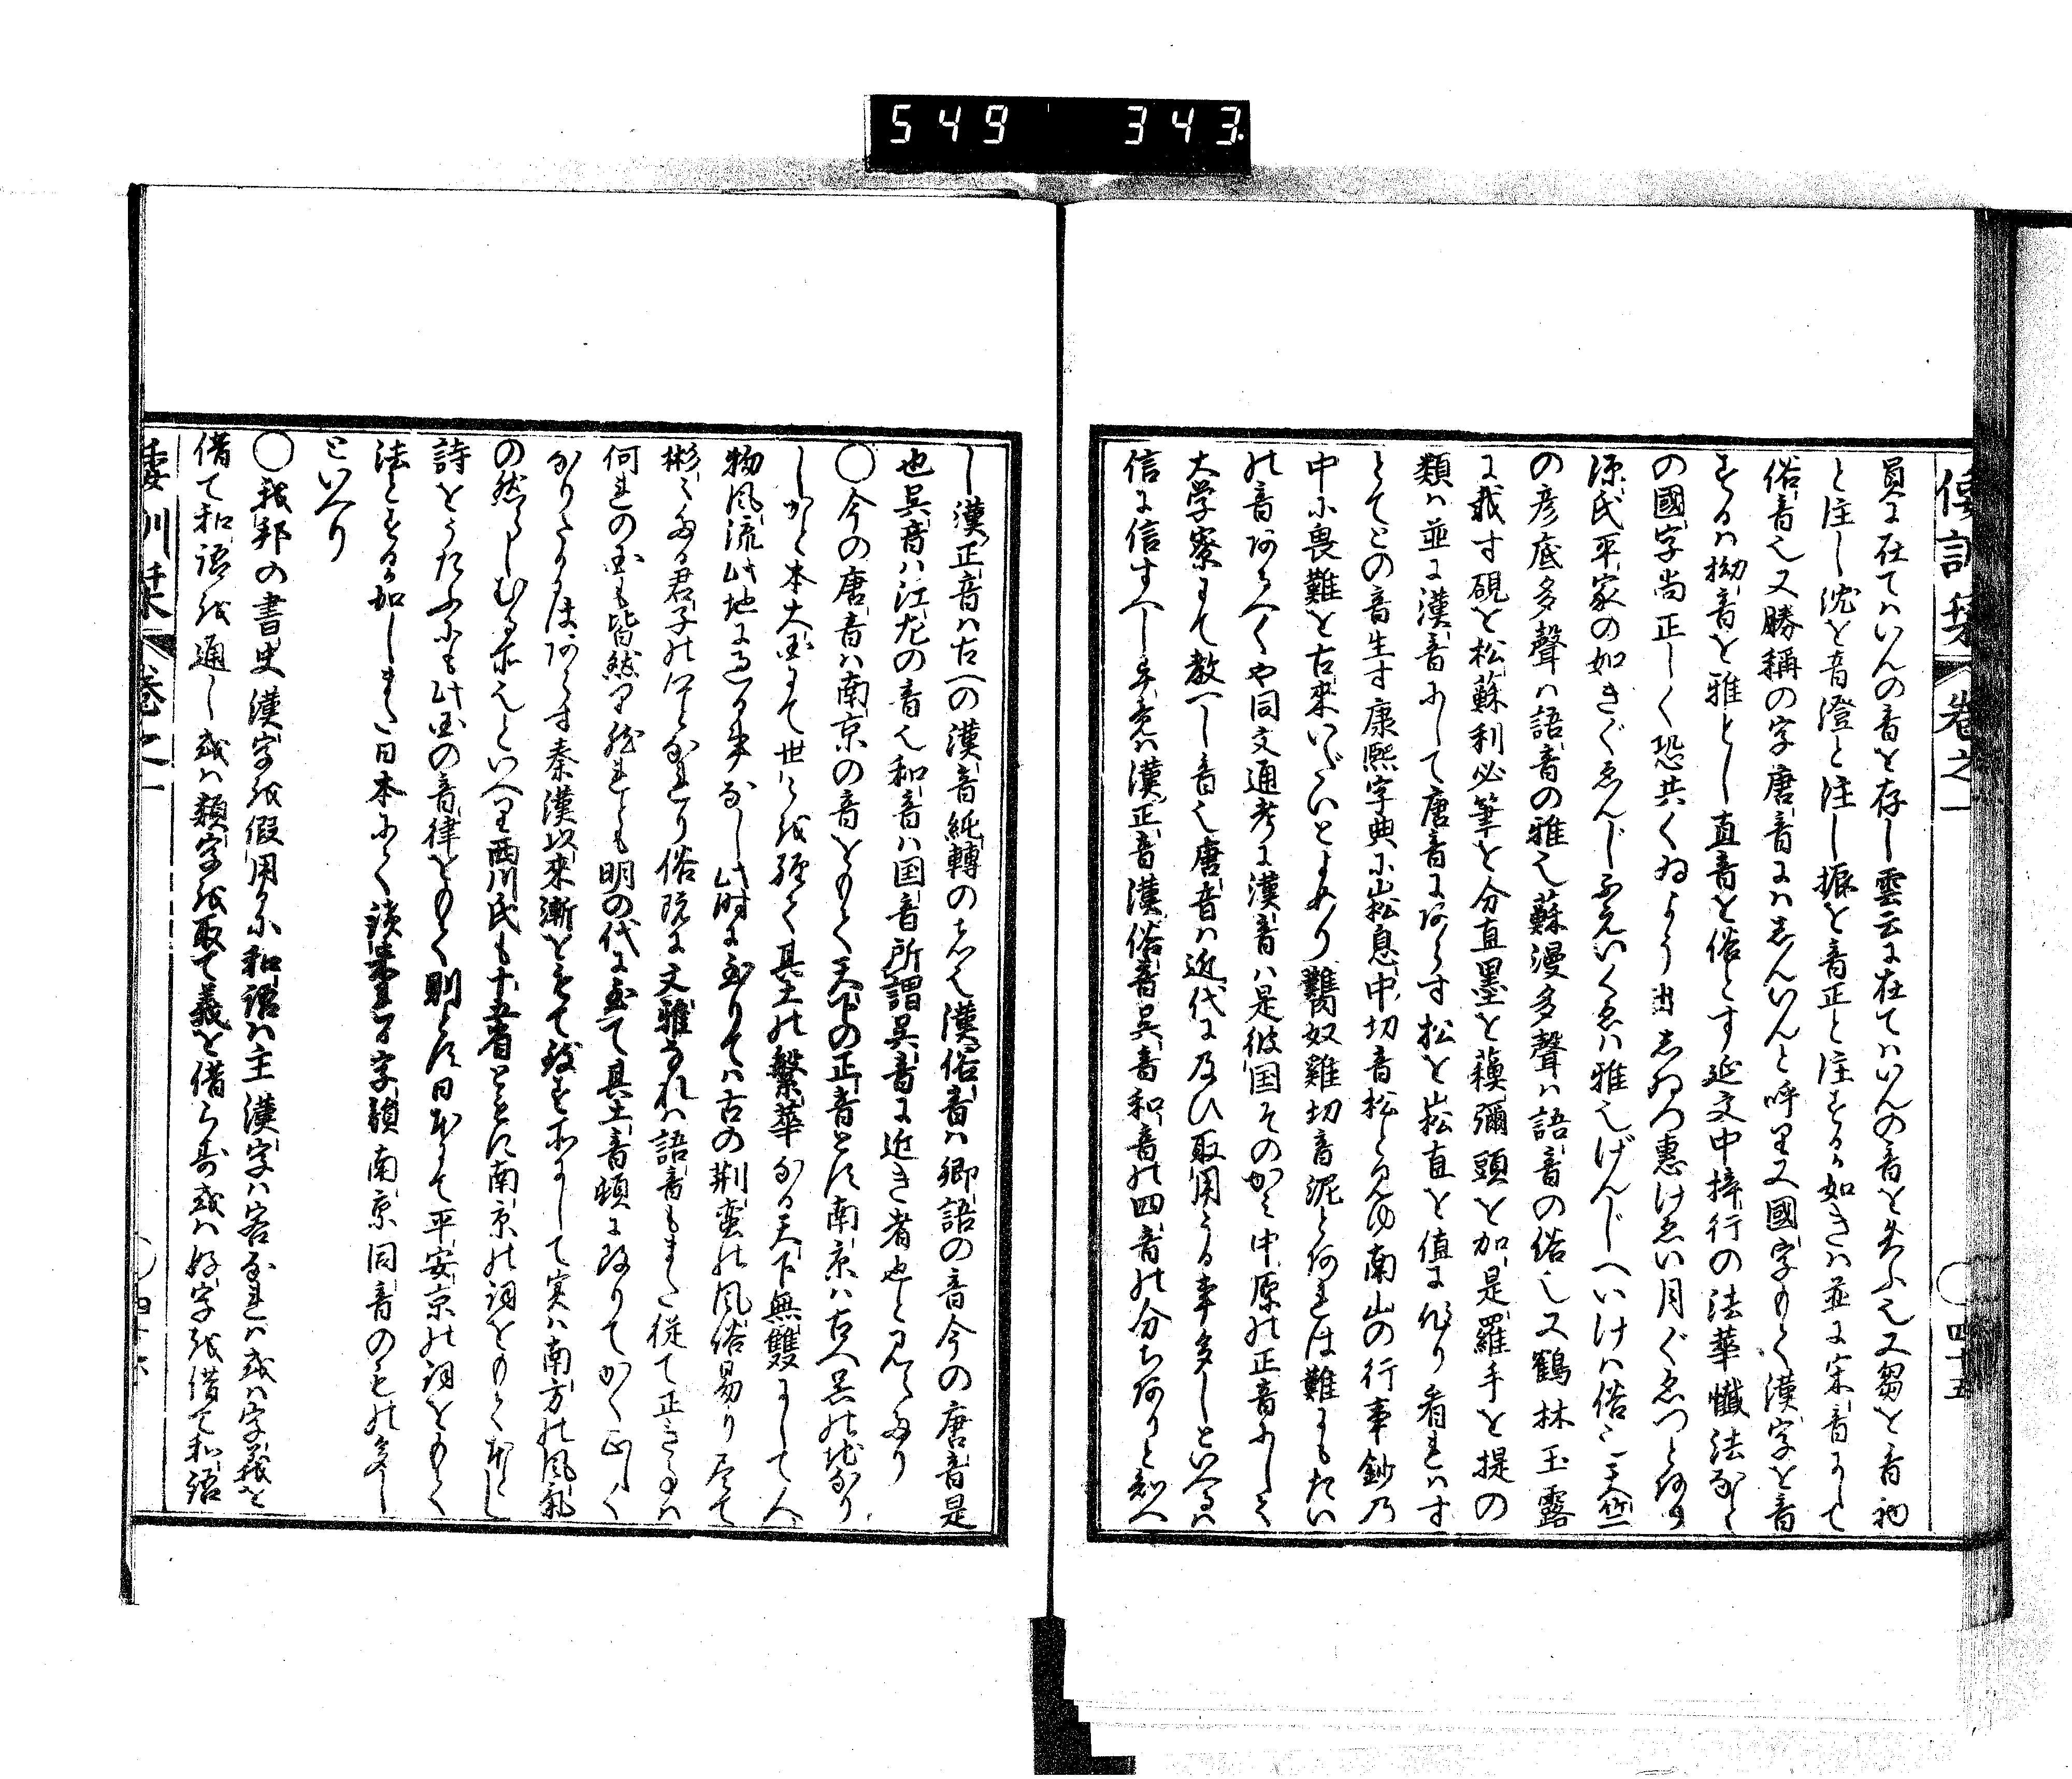 549 343
倭訓栞 卷之一 四十五
員に在てハいんの音を存し雲云に在てハいんの音を失ふ也又芻を音初
と注し沈を音澄と注し振を音正と注するか如きハ並に宋音にして
俗音也又勝稱の字唐音にハしんいんと呼り又國字もて漢字を音
するハ拗音を雅とし直音を俗とす延文中梓行の法華懺法なと
の國字尚正しく恐共くゐよう出しゆつ惠けゑい月ぐゑつとあり
源氏平家の如きぐゑんじふえいくゑハ雅也げんじへいけハ俗也天竺
の彦底多聲ハ語音の雅也蘇漫多聲ハ語音の俗也又鶴林玉露
に載す硯を松蘇利必筆を分直墨を蘇彌頭を加是羅手を提の
類ハ並に漢音にして唐音にあらす松を崧直を值に作り看れハす
とてとの音生す康熙字典に崧息中切音松と見ゆ南山の行事鈔乃
中に畏難を古來いだいとよめり難奴雞切音泥とあれは難にもたい
の音あるへくや同文通考に漢音ハ是彼国そのかミ中原の正音にして
大学寮にて教へし音也唐音ハ近代に及ひ取用うる事多しといへるハ
信に信すへし畢竟ハ漢正音漢俗音呉音和音の四音の分ちありと知へ
し漢正音ハ古への漢音純轉のミ也漢俗音ハ郷語の音今の唐音是
也呉音ハ江左の音也和音ハ国音所謂呉音に近き者也と見えたり
〇今の唐音ハ南京の音をもて天下の正音とす南京ハ古へ呉の地なり
しかと本大国にて世々を經て其土の繁華なる天下無雙にして人
物風流此地に過る事なし此時に至りてハ古の荊蛮の風俗易り尽て
彬々たる君子の所となれり俗既に文雅なれハ語音もまた従て正きなりハ
何れの国も皆然り然れとも明の代に至て其土音頓に改りてかく正しく
なりたるにはあらす秦漢以來漸をもて致す所にして実ハ南方の風氣
の然らしむる所也といへり西川氏も十五省ともに南京の詞をもて本とし
詩をうたふにも此国の音律をもて則とす日本にて平安京の詞をもて
法とするか如しまた日本にて讀來る字韻南京同音のもの多し
といへり
〇我邦の書史漢字を假用るに和語ハ主漢字ハ客なれハ或ハ字義を
借て和語を通し或ハ類字を取て義を借らす或ハ好字を借て和語
倭訓栞 卷之一 四十六